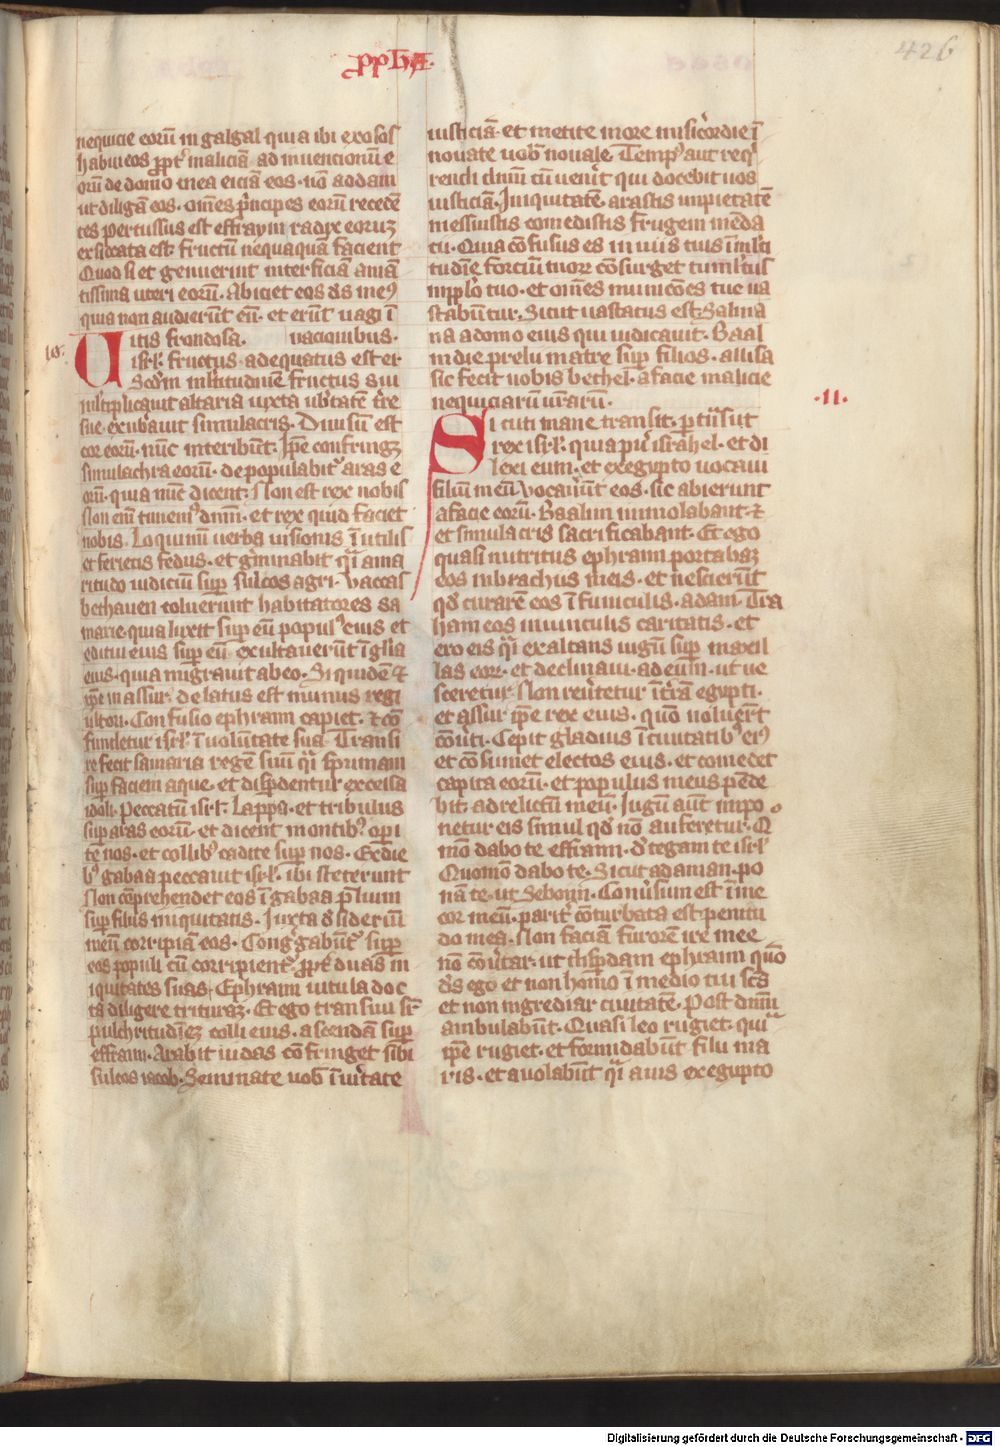 pphA.
426
nequicie eorū in galgal· quia ibi exosos
habui eos ꝓpt̕ maliciā ad inuencionū e
orū de domo mea eiciā eos· nō addam
ut diligā eos· om̄es p̄ncipes eorū receden̄
tes percussus est effraym radix eoruꝫ
exsiccata est· fructū nequaquā facient
Quod si et genuerint interficiā amā
tissima uteri eorū· Abiciet eos ds̄ me᷒
quia non audierūt eū· et erūt uagi ī
nacionibus·
10·
Uitis frondosa·
isrl̄· fructus adequatus est ei·
Scd̄m multitudinē fructus sui
ml̄tiplicauit altaria iuxta ub̄tatē tr̄e
sue· exub̄auit simulacris· Diuisū est
cor eorū· nūc interibūt· Ip̄e confringꝫ
simulachra eorū· depopulabit̕ aras e
orū· quia nūc dicent· Non est rex nobis
Non eni timem᷒ dnm̄· et rex quid faciet
nobis· Loquimī uerba uisionis ī utilis
et ferietis fedus· et g̕minabit q̄i ama
ritudo iudiciū sup̱ sulcos agri· Vaccas
bethauen coluerunt habitatores sa
marie· quia luxit sup̱ eū popul᷒ eius et
editui eius sup̱ eū exultauerūt ī gl̄ia
eius· quia migrauit ab eo· Si quidē ⁊
ip̄e in assur delatus est munus regi
ultori· Confusio ephraim capiet· ⁊ cō
fundetur isrl̄· ī uolūtate sua Transi
re fecit samaria regē suū q̄i spumam
sup̱ faciem aque· et disp̱dentur excelsa
idoli· Peccatū isrl̄· Lappa· et tribulus
sup̱ aras eorū· et dicent montib᷒ op̱i
te nos· et collib᷒ cadite sup̱ nos· Ex die
b᷒ gabaa peccauit isrl̄· ibi steterunt
Non cōprehendet eos ī gabaa p̄lium
sup̱ filios iniquitatis· Iuxta d̄sideriū
meū corripiā eos· Cong̕gabūt̕ sup̱
eos populi cū corripient̕ ꝓpt̕ duas in
iquitates suas· Ephraim uitula doc
ta diligere trituraꝫ· Et ego transiui sr̄
pulchritudineꝫ colli eius· ascendā sup̱
effraim· Arabit iudas cōfringet sibi
sulcos iacob· Seminate uob̄ ī iu̕tate
iusticiā· et metite more misic̕ordie ī
nouate uob̄ nouale Temp᷒ aut req̕
rendi dnm̄ cū uen̕it qui docebit uos
iusticiā· Iniquitatē arastis impietatē
messuistis comedistis frugem mēda
cii· Quia cōfusus es in uiis tuis ī ml̄ti
tudīe forciū tuor consurget tuml̄tus
in pp̄lo tuo· et om̄es municōes tue ua
stabūtur· Sicut uastatus est Salma
na a domo eius qui iudicauit· Baal
in die prelii matre sup̱ filios· allisa
sic fecit uobis bethel· a facie malicie
nequiciarū ur̄arū·
·11·
Sicuti mane transit· p̱tiisiit
rex isrl̄· quia pu̕ israhel· et di
lexi eum· et ex egypto uocaui
filiū meū Vocauer̄ūt eos· sic abierunt
a facie eorū· Baalim immolabant· ⁊
et simulacris sacrificabant· Et ego
quasi nutritus ephraim portabaꝫ
eos in brachiis meis· et nescierūt
qd̄ curarē eos ī funiculis· adam Tra
ham eos in uinculis caritatis· et
ero eis q̄i exaltans iugū sup̱ maxil
las eor· et declinaui ad eum· ut ue
sceretur· Non reu̕tetur ī tr̄ā egypti·
et assur ip̄e rex eius· qm̄o noluer̄t
cōu̕ti· Cepit gladius ī ciuitatib᷒ ei᷒
et cōsumet electos eius· et comedet
capita eorū· et populus meus pēde
bit· ad relictū meū· Iugū aūt impo
netur eis simul qd̄ nō auferetur· Q᷒
mō dabo te effraim· d̄tegam te isrl̄
Quomō dabo te· Sicut adaman· po
nā te· ut Seboyn· Conu̕sum est ī me
cor meū· parit̕ cōturbata est peniti
do mea· Non faciā furorē ire mee
nō cōu̕tar· ut disp̱dam ephraim quō
ds̄ ego et non homō ī medio tui sc̄s
et non ingrediar ciuitatē· Post dnm̄
ambulabūt· Quasi leo rugiet· quia
ip̄e rugiet· et formidabūt filii ma
ris· et auolabūt q̄i auis ex egypto
Digitalisierung gefördert durch die Deutsche Forschungsgemeinschaft - DFG